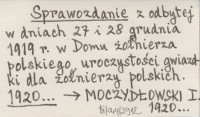 Sprawozdanie z odbytej
w dniach 27 i 28 grudnia
1919 r. w Domu żołnierza
polskiego, uroczystości gwiazd-
ki dla żołnierzy polskich.
1920... → MOCZYDŁOWSKI I.
1920...